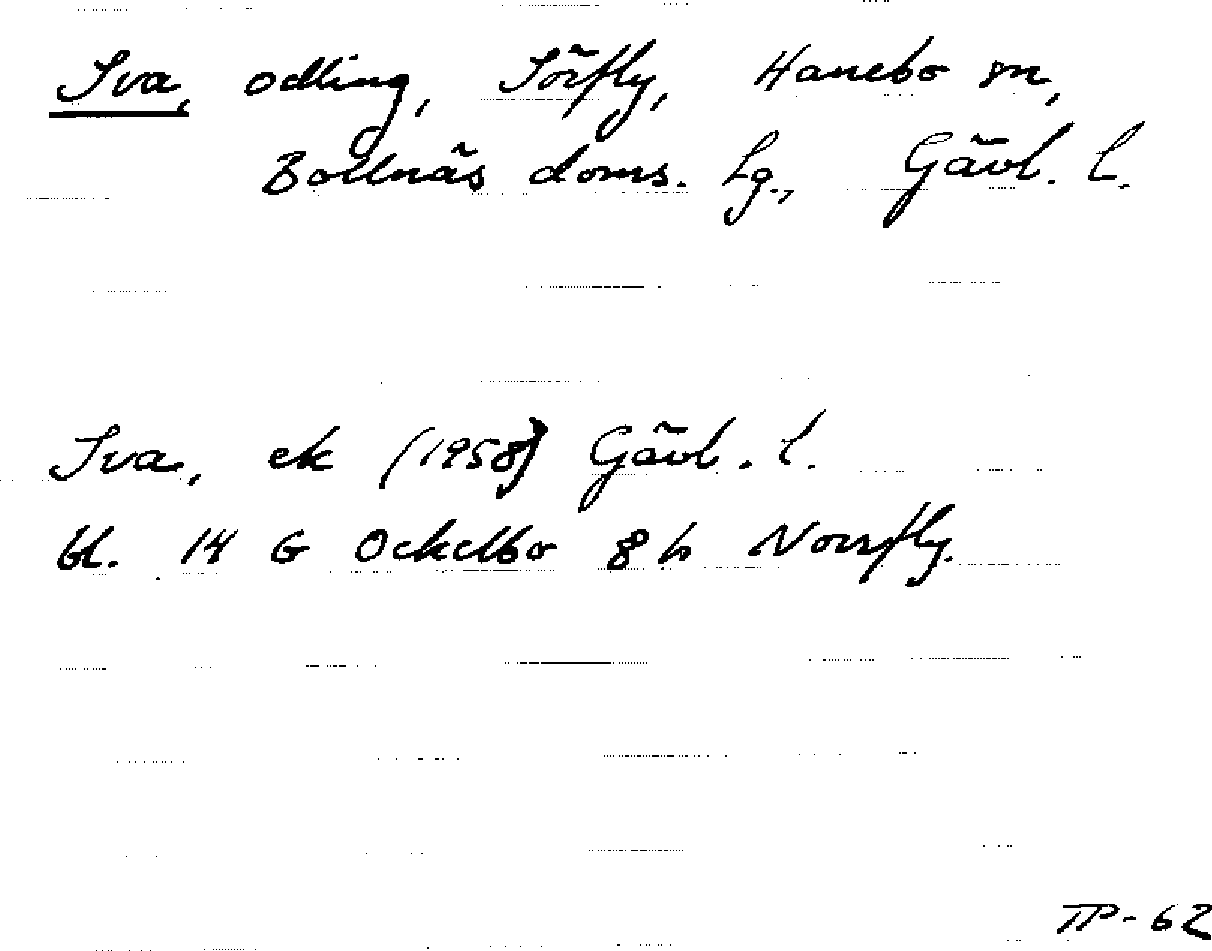 Sva, odling, Sörfly, Hanebo sn,
Bollnäs doms. lg., Gävl. l.
Sva, ek (1958) Gävl. l.
bl. 14 G Ockelbo 8 h Norrfly.
TP-62